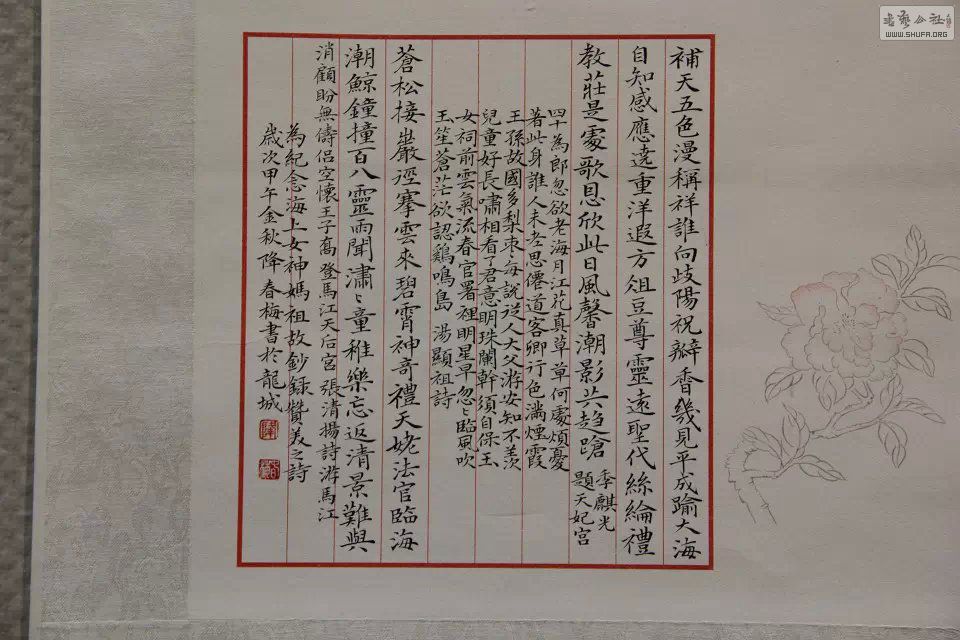 補天五色漫稱祥誰向歧陽祝瓣香幾見平成踰大海
自知感應遶重洋遐方俎豆尊靈遠聖代絲綸禮
教莊是處歌恩欣此日風馨潮影共趨蹌
季麒光
題天妃宮
四十為郎忽欲老海月江花真草草何處煩憂
著此身誰人未老思僊道客卿行色滿煙霞
王孫故國多梨棗每說沒人大父游安知不羨
兒童好長嘯相看了君意明珠闌幹須自保玉
女祠前雲氣流春官署裡明星早忽忽臨風吹
玉笙蒼茫欲認鷄鳴島 湯顯祖詩
蒼松接巖徑搴雲來碧霄神奇禮天姥法官臨海
潮鯨鐘撞百八靈雨聞瀟瀟童稚樂忘返清景難與
消顧盼無儔侶空懷王子喬 登馬江天后宮 張清揚詩游馬江
為紀念海上女神媽祖故鈔錄贊美之詩
歲次甲午金秋降春梅書於龍城
書藝公社
WWW.SHUFA.ORG